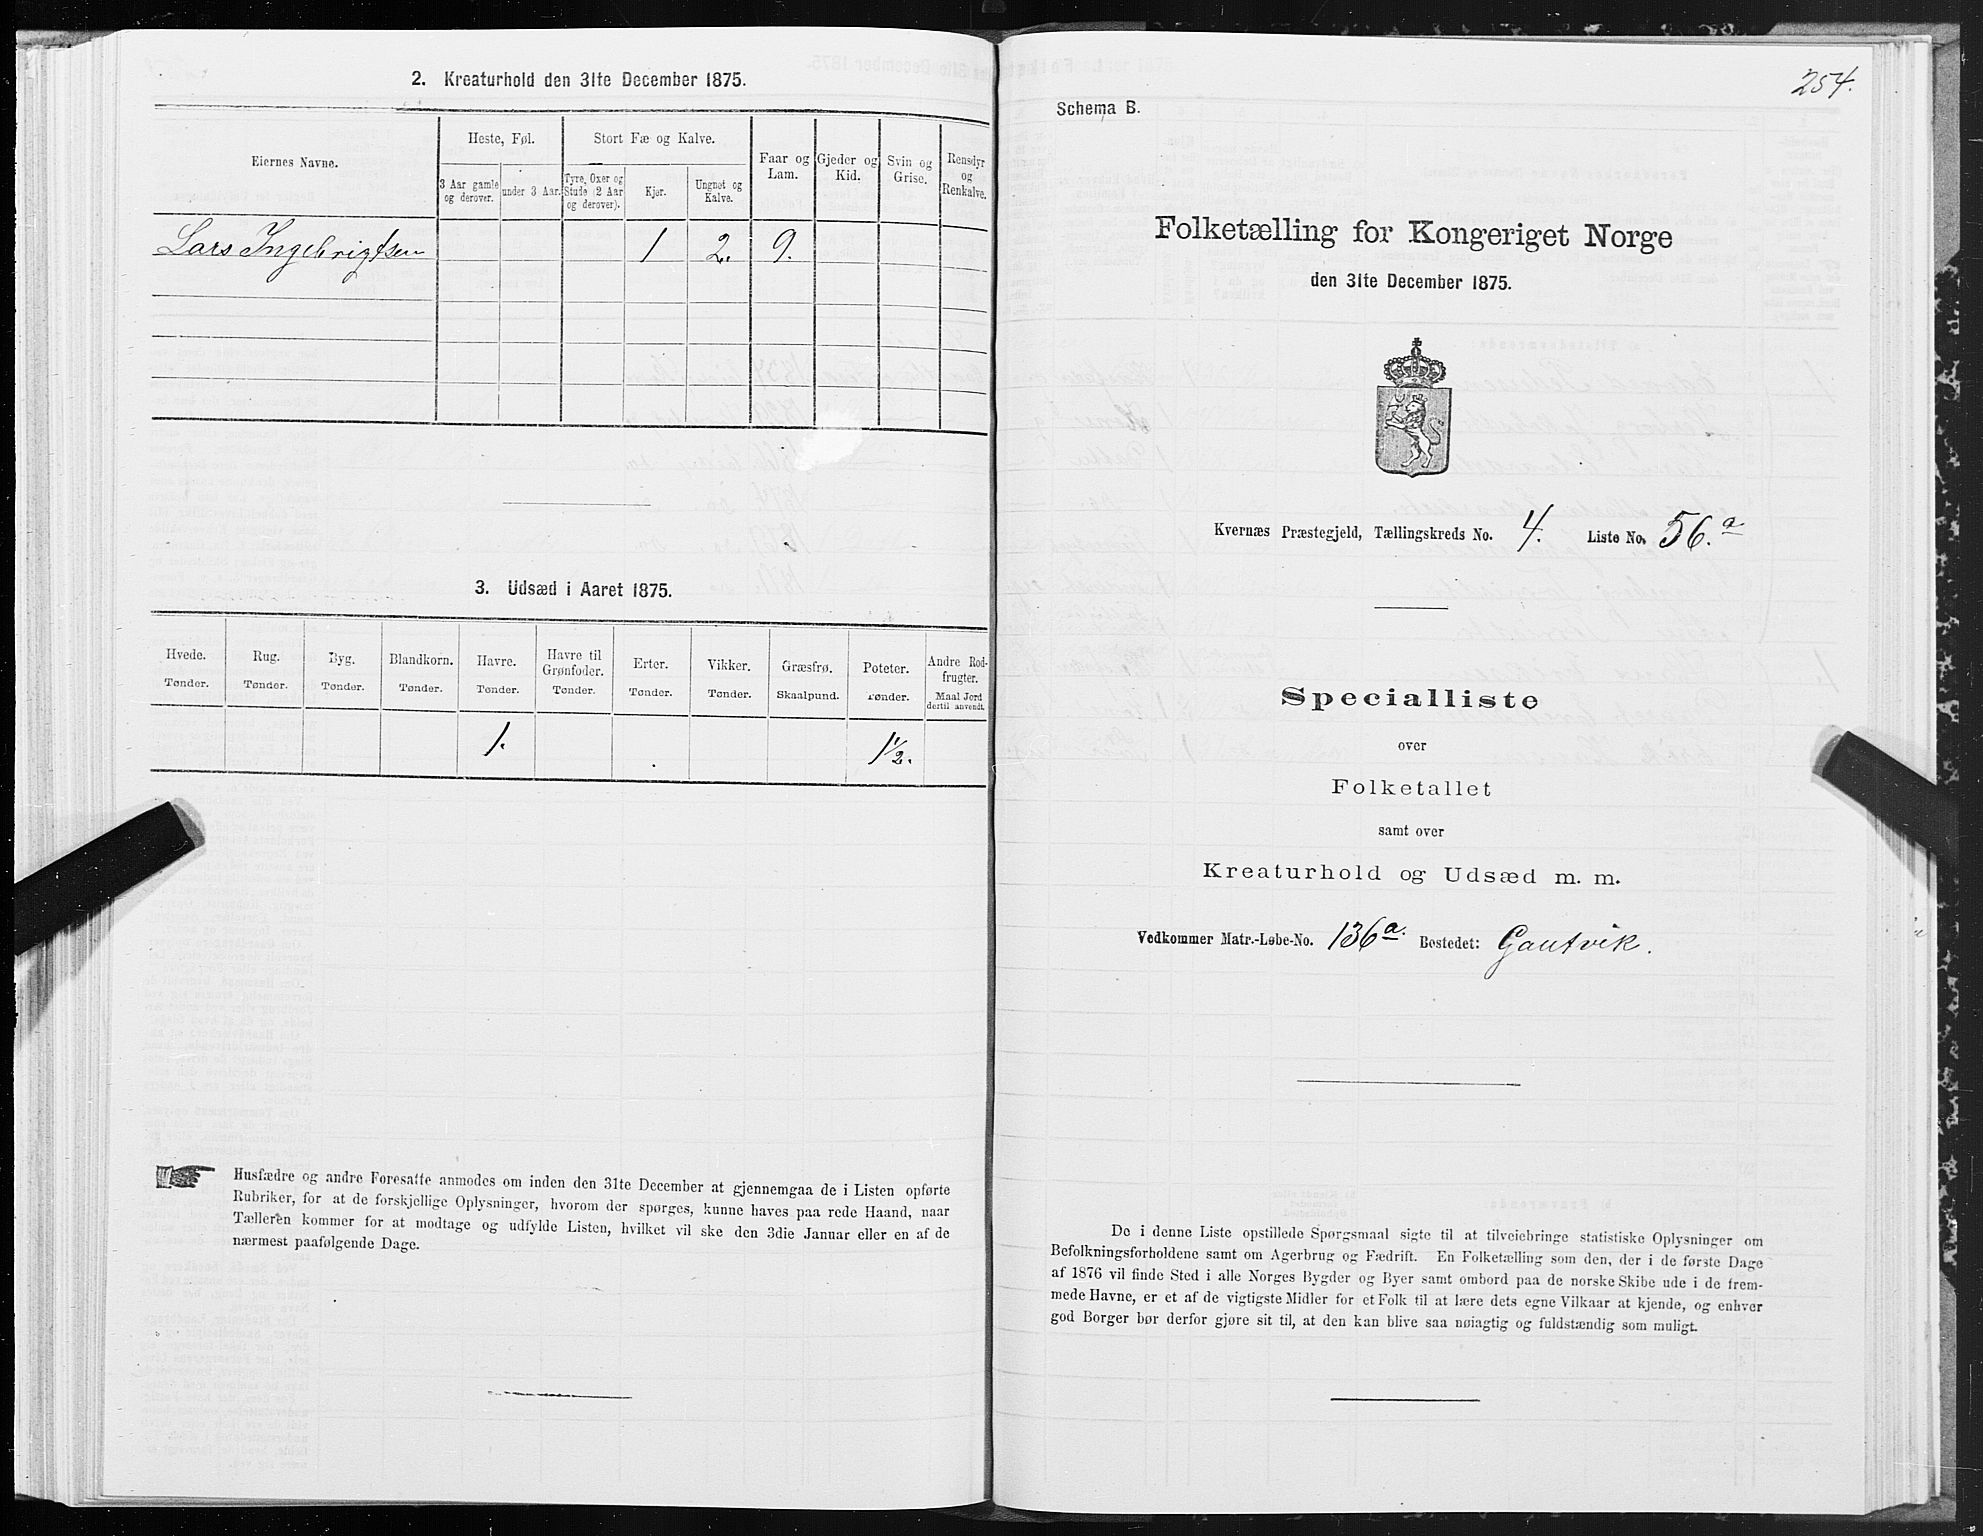 2. Kreaturhold den 31te December 1875.
Eiernes Navne.
Heste, Føl.
Stort Fæ og Kalve.
Faar og Lam.
Gjeder og Kid.
Svin og Grise.
Rensdyr og Renkalve.
3 Aar gamle og derover.
under 3 Aar.
Tyre, Oxer og Stude (2 Aar og derover).
Kjør.
Ungnøt og Kalve.
Lars Ingebrigtsen 1 2. 9.
3. Udsæd i Aaret 1875.
Hvede. Tønder.
Rug. Tønder.
Byg. Tønder.
Blandkorn. Tønder.
Havre. Tønder.
Havre til Grønfoder. Tønder.
Erter. Tønder.
Vikker. Tønder.
Græsfrø. Skaalpund.
Poteter. Tønder.
Andre Rodfrugter. Maal Jord dertil anvendt.
1. 1½.
Husfædre og andre Foresatte anmodes om inden den 31te December at gjennemgaa de i Listen opførte
Rubriker, for at de forskjellige Oplysninger, hvorom der spørges, kunne haves paa rede Haand, naar
Tælleren kommer for at modtage og udfylde Listen, hvilket vil ske den 3die Januar eller en af de
nærmest paafølgende Dage.
254.
Schema B.
Folketælling for Kongeriget Norge
den 31te December 1875.
Kvernæs Præstegjeld, Tællingskreds No. 4. Liste No. 56.a
Specialliste
over
Folketallet
samt over
Kreaturhold og Udsæd m. m.
Vedkommer Matr.-Løbe-No. 136a. Bostedet: Gautvik.
De i denne Liste opstillede Spørgsmaal sigte til at tilveiebringe statistiske Oplysninger om
Befolkningsforholdene samt om Agerbrug og Fædrift. En Folketælling som den, der i de første Dage
af 1876 vil finde Sted i alle Norges Bygder og Byer samt ombord paa de norske Skibe ude i de frem-
mede Havne, er et af de vigtigste Midler for et Folk til at lære dets egne Vilkaar at kjende, og enhver
god Borger bør derfor gjøre sit til, at den kan blive saa nøiagtig og fuldstændig som muligt.